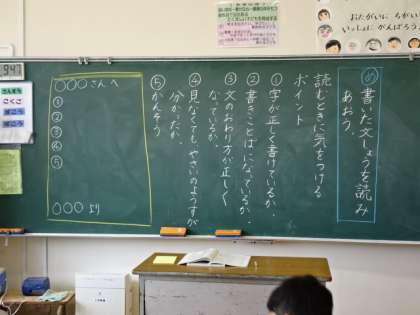 め 書いた文しょうを読み
あおう。
読むときに気をつける
ポイント
①字が正しく書けているか。
②書きことばになっているか。
③文のおわり方が正しく
なっているか。
④見なくても、やさいのようすが
分かったか。
⑤かんそう
○○○さんへ
①
②
③
④
⑤
○○○より
おたがいに ちがいを
いっしょに がんばろう。
さんすう
こくご